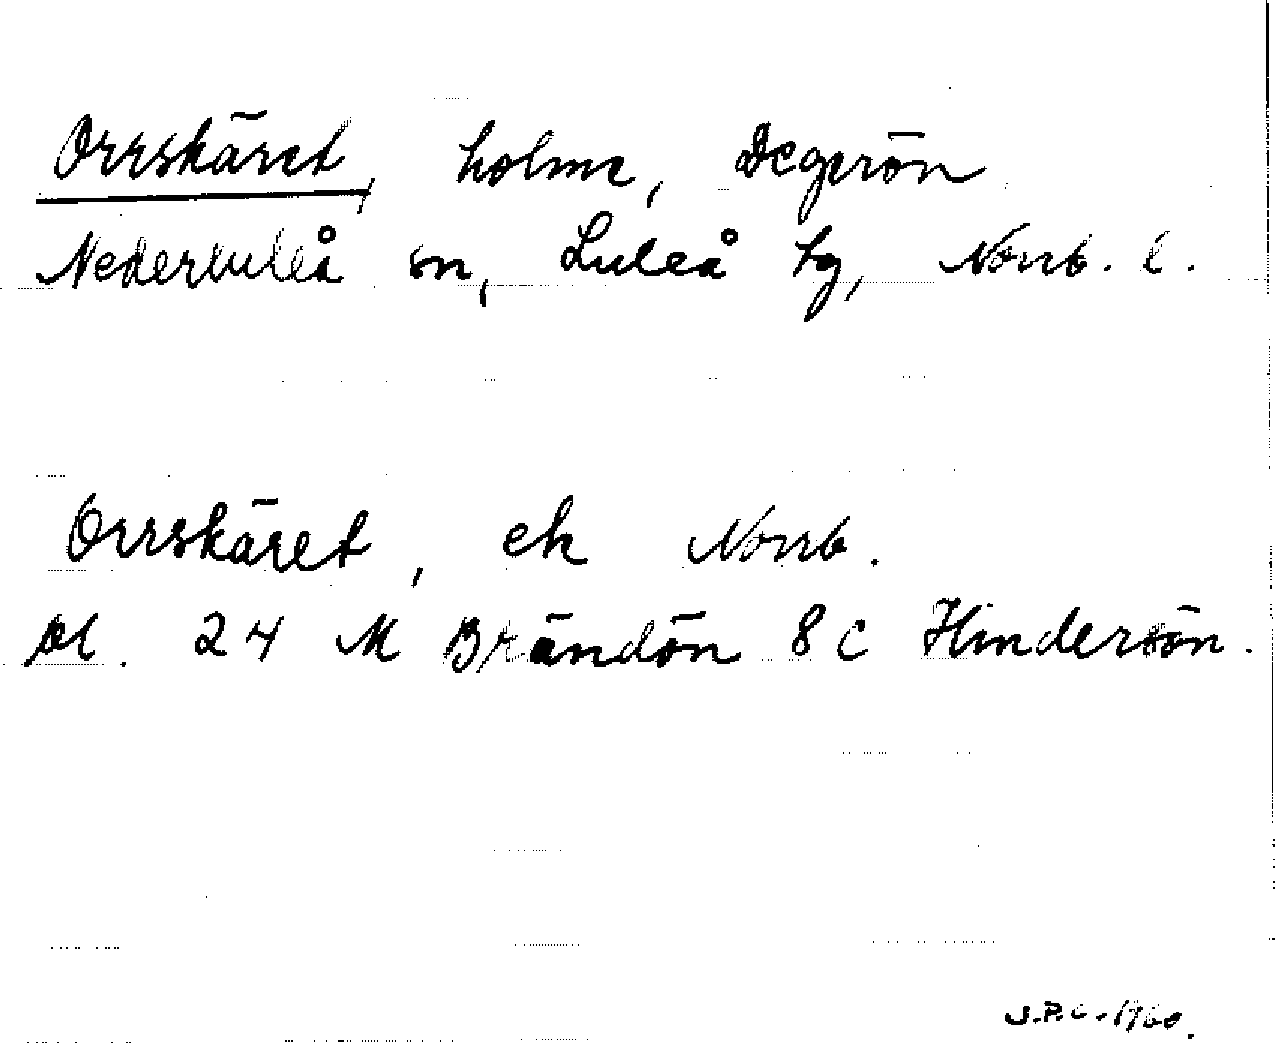 Orrskäret, holme, Degerön
Nederluleå sn, Luleå tg, Norrb. l.
Orrskäret, ek Norrb.
bl. 24 M Brändön 8 C Hindersön.
J.P.C. 1960.